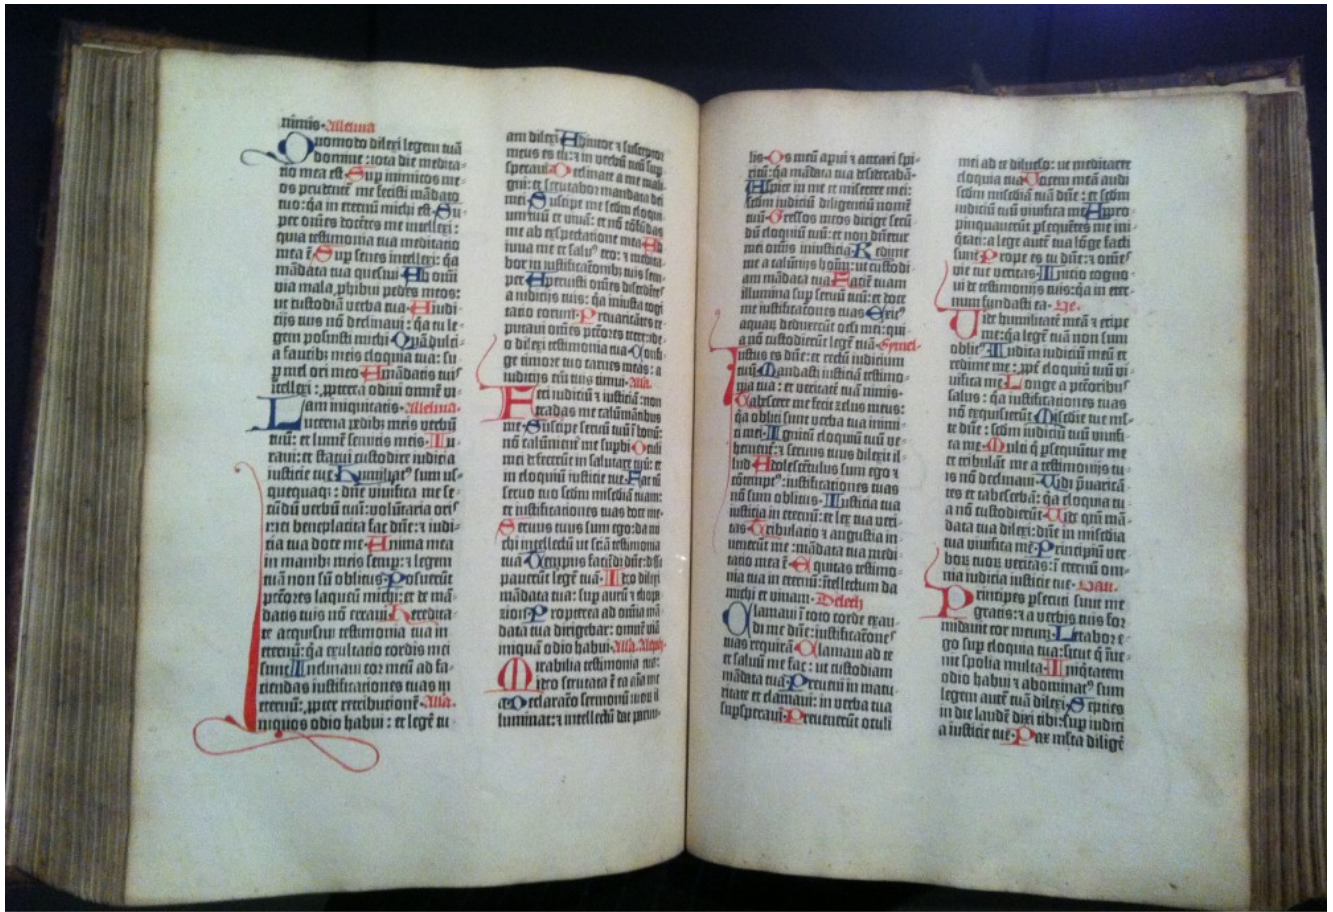 nimis · Alleluia
Quomodo dilexi legem tuā
domine : tota die medita⸗
tio mea est · Sup inimicos me⸗
os prudentē me fecisti mādato
tuo : q̄a in eternū michi est · Su⸗
per om̄es docētes me intellexi :
quia testimonia tua meditatio
mea ē · Sup senes intellexi : q̄a
mādata tua quesiui · Ab omni
via mala phibui pedes meos :
ut custodiā verba tua · A iudi⸗
cijs tuis nō declinaui : q̄a tu le⸗
gem posuisti michi · Quā dulci⸗
a faucibz meis eloquia tua : su⸗
p mel ori meo · A mādatis tuis
intellexi : pp̄terea odiui omnē vi⸗
am iniquitatis · Alleluia ·
Lucerna pedibz meis verbū
tuū : et lumē semitis meis · Iu⸗
raui : et statui custodire iudicia
iusticie tue · Humiliat⁹ sum us⸗
quequaqz : dn̄e viuifica me se⸗
cūdū verbū tuū · Volūtaria oris
mei beneplacita fac dn̄e : ⁊ iudi⸗
cia tua doce me · Anima mea
in manibz meis semp : ⁊ legem
tuā non sū oblitus · Posuerūt
pctōres laqueū michi : et de mā⸗
datis tuis nō erraui · Heredita⸗
te acquisiui testimonia tua in
eternū : q̄a exultatio cordis mei
sunt · Inclinaui cor meū ad fa⸗
ciendas iustificationes tuas in
eternū : ppter retributionē · Alla ·
Iniquos odio habui : et legē tu⸗
am dilexi · Adiutor ⁊ susceptor
meus es tu : ⁊ in verbū tuū sup
speraui · Declinate a me mali⸗
gni : et scrutabor mandata dei
mei · Suscipe me scdm eloqui⸗
um tuū et viuā : et nō cōfūdas
me ab expectatione mea · Ad⸗
iuua me et salu⁹ ero : ⁊ medita⸗
bor in iustificatōnibz tuis sem⸗
per · Spreuisti om̄es discedētes
a iudicijs tuis : q̄a iniusta cogi⸗
tatio eorum · Preuaricātes re⸗
putaui om̄es pctōres terre : ide⸗
o dilexi testimonia tua · Confi⸗
ge timore tuo carnes meas : a
iudicijs em̄ tuis timui · Alla ·
Feci iudiciū ⁊ iusticiā : non
tradas me calūniantibus
me · Suscipe seruū tuū ī bonū :
nō calūnient' me supbi · Oculi
mei defecerūt in salutare tuū : et
in eloquiū iusticie tue · Fac cū
seruo tuo scdm misc̄diā tuam :
et iustificationes tuas doce me ·
Seruus tuus sum ego : da mi⸗
chi intellectū ut sciā testimonia
tua · Tempus faciēdi dn̄e : dissi⸗
pauerūt legē tuā · Ideo dilexi
mādata tua : sup aurū ⁊ thopa⸗
zion · Propterea ad om̄ia mā⸗
data tua dirigebar : omnē viā
iniquā odio habui · Alla · Aleph ·
Mirabilia testimonia tua :
ideo scrutata ē ea aīa me⸗
a · Declaratio sermonū tuoꝝ il⸗
luminat : ⁊ intellectū dat paruu⸗
lis · Os meū apui ⁊ attraxi spi⸗
ritū : q̄a mādata tua desiderabā ·
Aspice in me et miserere mei :
scdm iudiciū diligentiū nomē
tuū · Gressos meos dirige secū⸗
dū eloquiū tuū : et non dn̄etur
mei omīs iniusticia · Redime
me a calūnijs hoīm : ut custodi⸗
am mādata tua · Faciē tuam
illumina sup seruū tuū : et doce
me iustificatōnes tuas · Exit⁹
aquaꝝ deduxerūt oc̄li mei : qui⸗
a nō custodierūt legē tuā · Gymel ·
Iustus es dn̄e : et rectū iudicium
tuū · Mandasti iusticiā testimo⸗
nia tua : et veritatē tuā nimis ·
Tabescere me fecit zelus meus :
q̄a obliti sunt verba tua inimi⸗
ci mei · Ignitū eloquiū tuū ve⸗
hement' : ⁊ seruus tuus dilexit il⸗
lud · Adolescētulus sum ego ⁊
cōtempt⁹ : iustificationes tuas
nō sum oblitus · Iusticia tua
iusticia in eternū : et lex tua veri⸗
tas · Tribulatio ⁊ angustia in⸗
uenerūt me : mādata tua medi⸗
tatio mea ē · Equitas testimo⸗
nia tua in eternū : ītellectum da
michi et viuam · Deleth
Clamaui ī toto corde exau⸗
di me dn̄e : iustificatōnes
tuas requirā · Clamaui ad te
et saluū me fac : ut custodiam
mādata tua · Preueni in matu⸗
ritate et clamaui : in verba tua
supsperaui · Preuenerūt oculi
mei ad te diluclo : ut meditarer
eloquia tua · Vocem meā audi
scdm misc̄diā tuā dn̄e : et scdm
iudiciū tuū viuifica me · Appro⸗
pinquauerūt psequētes me ini⸗
q̄tati : a lege autē tua lōge facti
sunt · Prope es tu dn̄e : ⁊ om̄es
vie tue veritas · Inicio cogno⸗
ui de testimonijs tuis : q̄a in eter⸗
num fundasti ea · He ·
Vide humilitatē meā ⁊ eripe
me : q̄a legē tuā non sum
oblit⁹ · Iudica iudiciū meū et
redime me : ppt' eloquiū tuū vi⸗
uifica me · Longe a pctōribus
salus : q̄a iustificationes tuas
nō exquisierūt · Misc̄die tue ml⸗
te dn̄e : scdm iudiciū tuū viuifi⸗
ca me · Multi q̄ psequūtur me
et tribulāt me a testimonijs tu⸗
is nō declinaui · Vidi p̄uaricā⸗
tes et tabescebā : q̄a eloquia tu⸗
a nō custodierūt · Vide qm̄ mā⸗
data tua dilexi : dn̄e in misc̄dia
tua viuifica me · Principiū ver⸗
boꝝ tuoꝝ veritas : ī eternū om⸗
nia iudicia iusticie tue · Vau ·
Principes psecuti sunt me
gratis : ⁊ a verbis tuis for⸗
midauit cor meum · Letabor e⸗
go sup eloquia tua : sicut q̄ īue⸗
nit spolia multa · Iniq̄tatem
odio habui ⁊ abominat⁹ sum
legem autē tuā dilexi · Septies
in die laudē dixi tibi : sup iudici⸗
a iusticie tue · Pax mlta diligē⸗